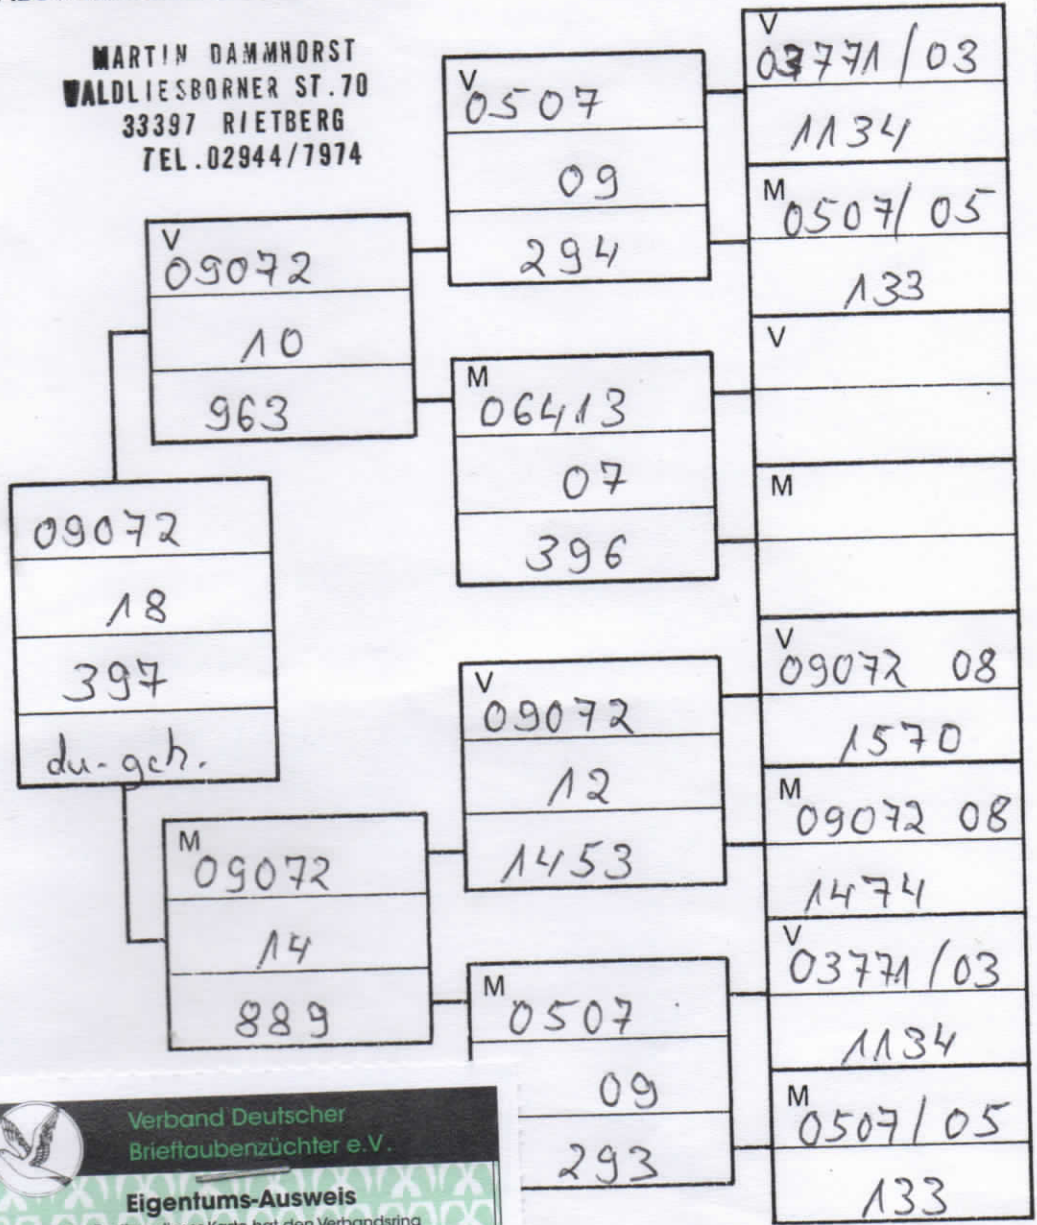 MARTIN DAMMHORST
WALDLIESBORNER ST.70
33397 RIETBERG
TEL.02944/7974
09072
18
397
du-geh.
V
09072
10
963
M
09072
14
889
V
0507
09
294
M
06413
07
396
V
09072
12
1453
M
0507
09
293
V
03771/03
1134
M
0507/05
133
V
M
V
09072 08
1570
M
09072 08
1474
V
03771/03
1134
M
0507/05
133
Verband Deutscher
Brieftaubenzüchter e.V.
Eigentums-Ausweis
Karte hat den Verbandsring